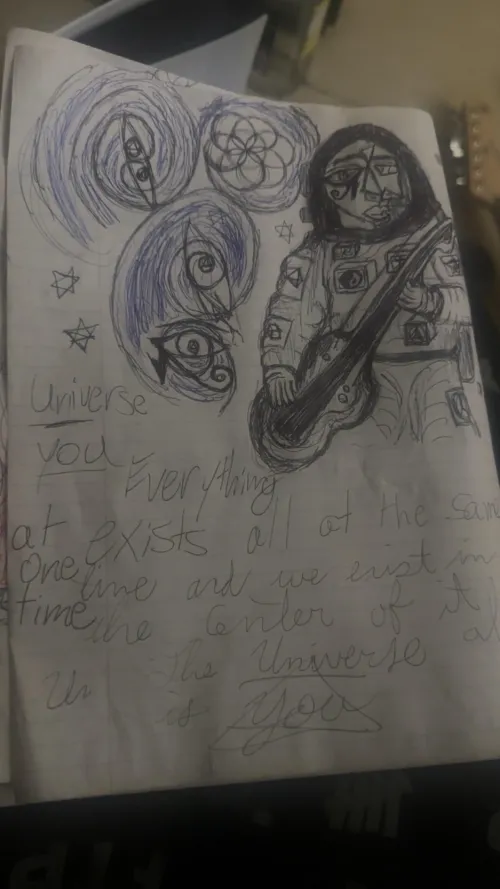 Universe
you
Everything
at exists all at the sam
one line and we exist in
time the Center of it
Un The Universe al
is You